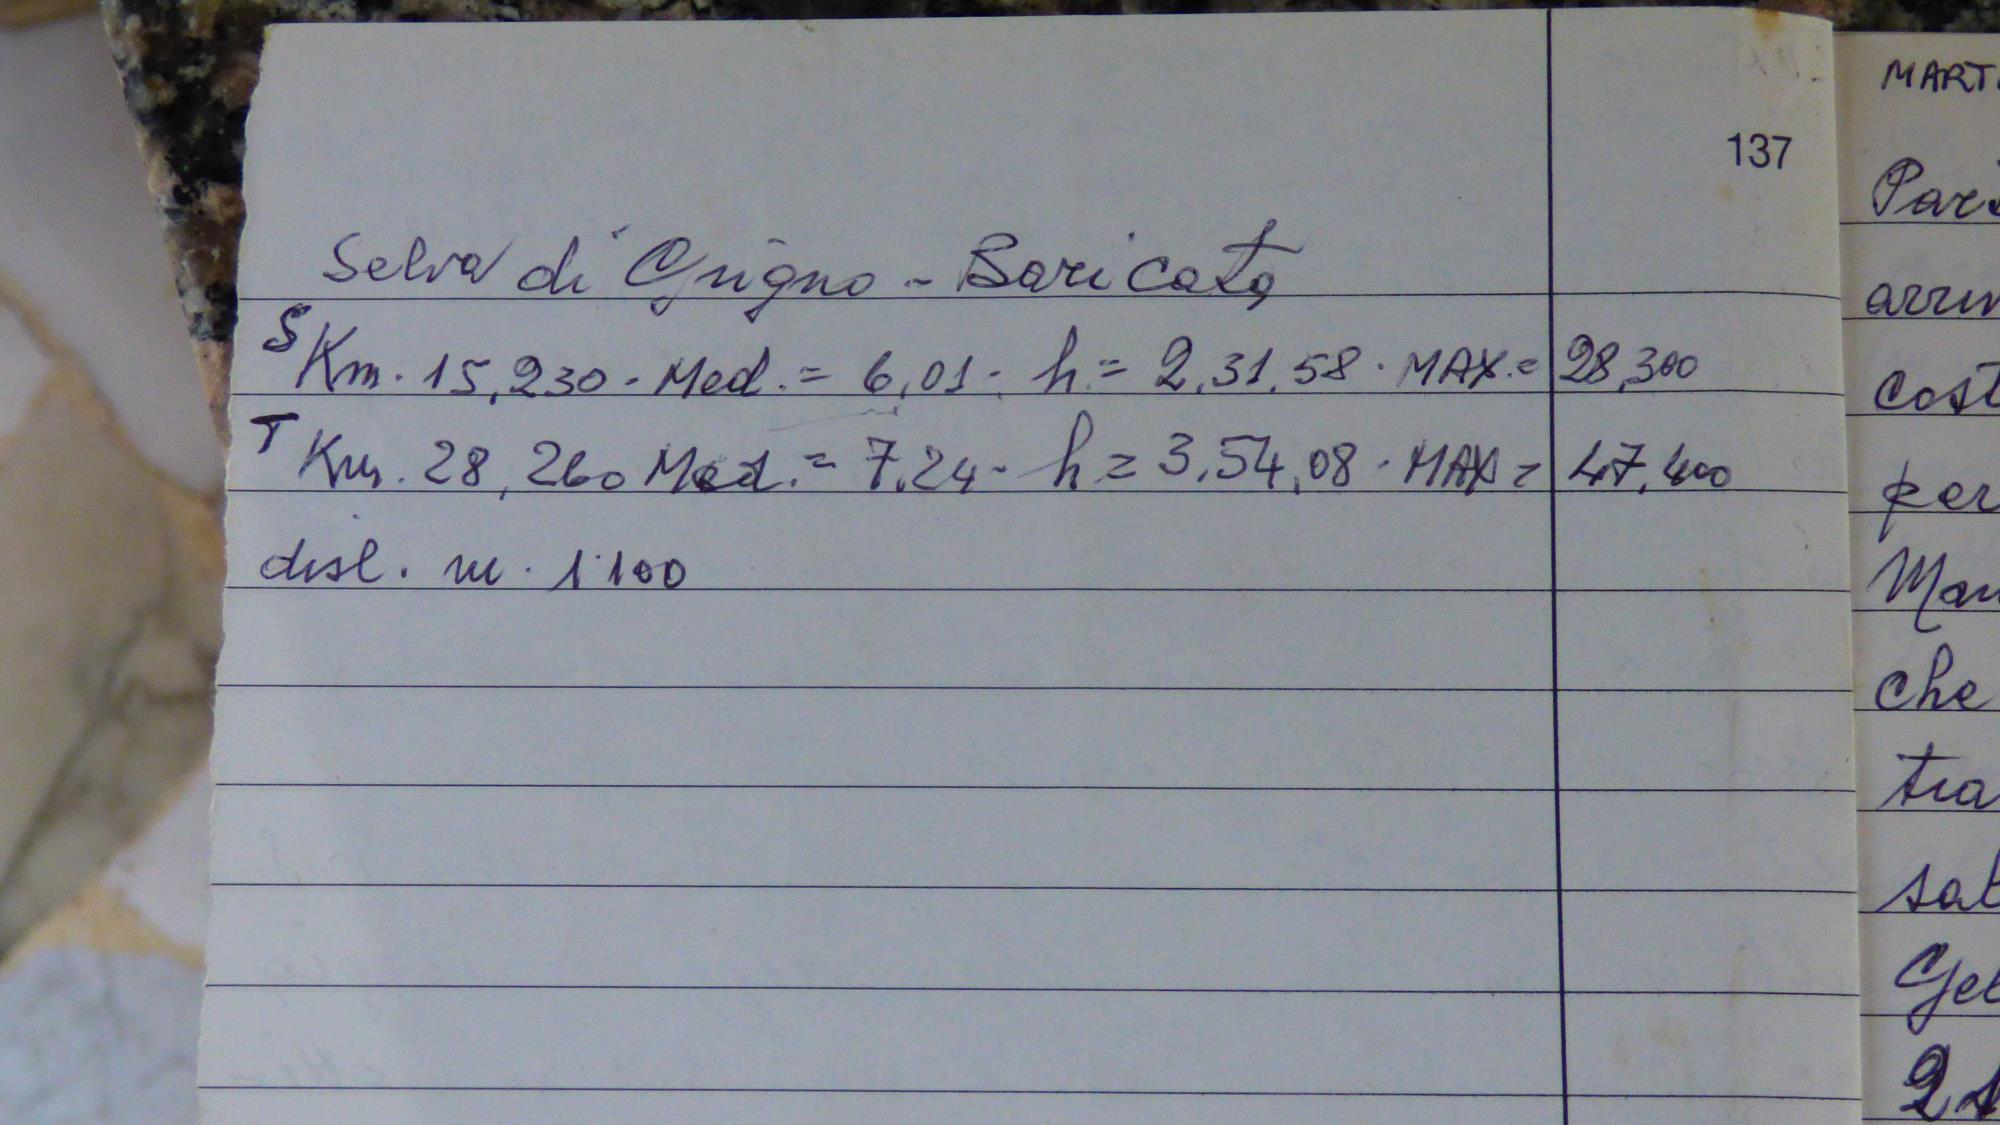 137
Selva di Grigno - Baricata
S Km. 15,230 - Med. = 6,01 - h = 2,31,58 - MAX. = 28,300
T Km. 28,260 Med. = 7,24 - h = 3,54,08 - MAX = 47,400
disl. m. 1.100
MART
Par
arri
cost
per
Man
che
tra
sal
Gel